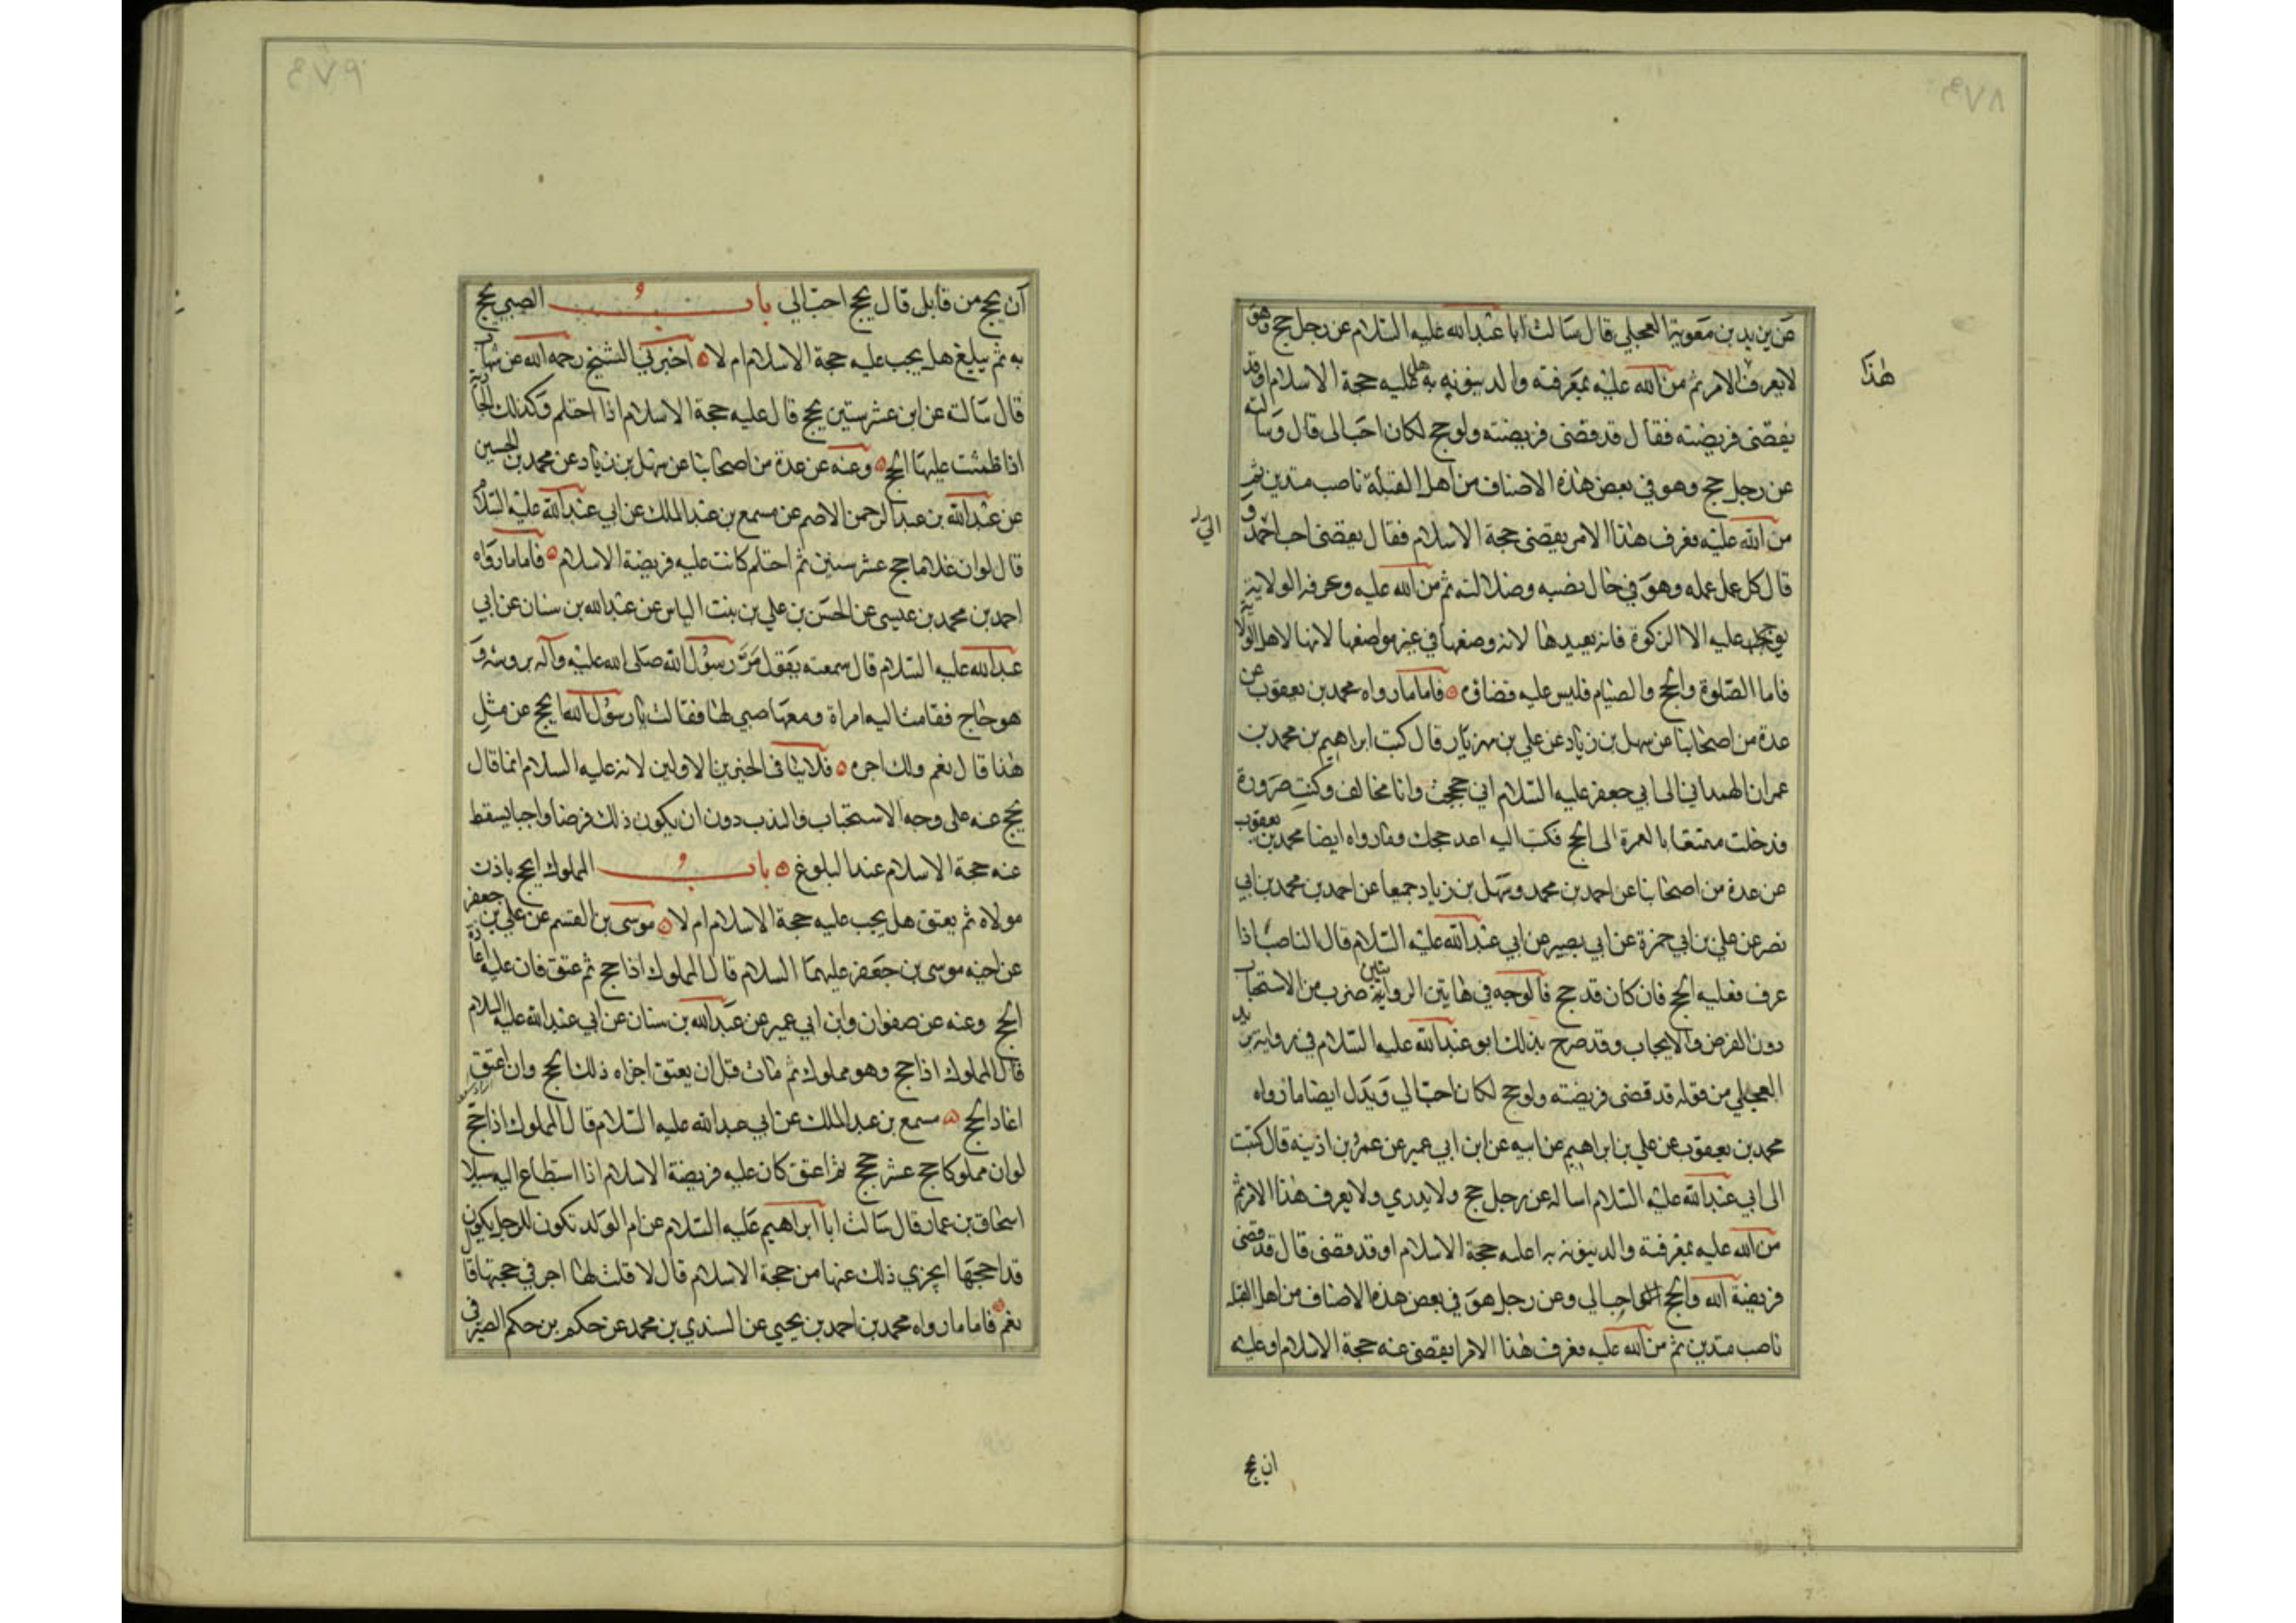 هذا
عن بريد بن معوية العجلي قال سالت ابا عبدالله عليه السلام عن رجل حج وهو
لا يعرف الامر ثم من الله عليه بمعرفته والدينونه به هل عليه حجة الاسلام او قد
يقضى فريضته فقال قد قضى فريضته ولو حج لكان احب الى قال وسالته
عن رجل حج وهو في بعض هذه الاصناف من اهل القبلة ناصب متدين ثم
من الله عليه فعرف هذا الامر يقضى حجة الاسلام فقال يقضى احب الي و
قال كل عمل عمله وهو في حال نصبه وضلالته ثم من الله عليه وعرفه الولاية
يوجر عليه الا الزكوة فانه يعيدها لانه وضعها في غير مواضعها لانها لاهل الولاية
فاما الصلوة والحج والصيام فليس عليه قضاؤه فاما ما رواه محمد بن يعقوب عن
عدة من اصحابنا عن سهل بن زياد عن علي بن مهزيار قال كتب ابراهيم بن محمد بن
عمران الهمداني الى ابي جعفر عليه السلام اني حججت وانا مخالف وكنت صرورة
فدخلت متمتعا بالعمرة الى الحج فكتب اليه اعد حجك وما رواه ايضا محمد بن يعقوب
عن عدة من اصحابنا عن احمد بن محمد وسهل بن زياد جميعا عن احمد بن محمد بن ابي
نصر عن علي بن ابي حمزة عن ابي بصير عن ابي عبدالله عليه السلام قال الناصب اذا
عرف فعليه الحج فان كان قد حج فالوجه في هاتين الروايتين ضرب من الاستحباب
دون الفرض والايجاب وقد صرح بذلك ابو عبدالله عليه السلام في رواية بريد
العجلي من قوله قد قضى فريضته ولو حج لكان احب الي ويدل ايضا ما رواه
محمد بن يعقوب عن علي بن ابراهيم عن ابيه عن ابن ابي عمير عن عمر بن اذينه قال كتبت
الى ابي عبدالله عليه السلام اساله عن رجل حج ولا يدري ولا يعرف هذا الامر ثم
من الله عليه بمعرفة والدينونه به اعليه حجة الاسلام او قد قضى قال قد قضى
فريضة الله والحج احب الي وعن رجل هو في بعض هذه الاصناف من اهل القبله
ناصب متدين ثم من الله عليه فعرف هذا الامر ايقضى عنه حجة الاسلام او عليه
ان يحج
ان يحج من قابل قال يحج احب الي باب الصبي يحج
به ثم يبلغ هل يجب عليه حجة الاسلام ام لا اخبرني الشيخ رحمه الله عن شهاب
قال سالته عن ابن عشر سنين يحج قال عليه حجة الاسلام اذا احتلم وكذلك الجارية
اذا طمثت عليها الحج وعنه عن عدة من اصحابنا عن سهل بن زياد عن محمد بن الحسين
عن عبدالله بن عبدالرحمن الاصم عن مسمع بن عبدالملك عن ابي عبدالله عليه السلام
قال لو ان غلاما حج عشر سنين ثم احتلم كانت عليه فريضة الاسلام فاما ما رواه
احمد بن محمد بن عيسى عن الحسن بن علي بن بنت الياس عن عبدالله بن سنان عن ابي
عبدالله عليه السلام قال سمعته يقول مر رسول الله صلى الله عليه وآله برويثة و
هو حاج فقامت اليه امراة ومعها صبي لها فقالت يا رسول الله ايحج عن مثل
هذا قال نعم ولك اجره فلا ينافى الخبرين الاولين لانه عليه السلام انما قال
يحج عنه على وجه الاستحباب والندب دون ان يكون ذلك فرضا واجبا يسقط
عنه حجة الاسلام عند البلوغ باب المملوك ايحج باذن
مولاه ثم يعتق هل يجب عليه حجة الاسلام ام لا موسى بن القسم عن علي بن جعفر
عن اخيه موسى بن جعفر عليهما السلام قال المملوك اذا حج ثم عتق فان عليه اعادة
الحج وعنه عن صفوان وابن ابي عمير عن عبدالله بن سنان عن ابي عبدالله عليه السلام
قال المملوك اذا حج وهو مملوك ثم مات قبل ان يعتق اجزاه ذلك الحج وان اعتق
اعاد الحج مسمع بن عبدالملك عن ابي عبدالله عليه السلام قال المملوك اذا حج
لو ان مملوكا حج عشر حجج ثم اعتق كان عليه فريضة الاسلام اذا استطاع اليه سبيلا
اسحاق بن عمار قال سالت ابا ابراهيم عليه السلام عن ام الولد تكون للرجل يكون
قد احجها ايجزي ذلك عنها من حجة الاسلام قال لا قلت لها اجر في حجتها قال
نعم فاما ما رواه محمد بن احمد بن يحيي عن السندي بن محمد عن حكم بن حكم الصيرفي